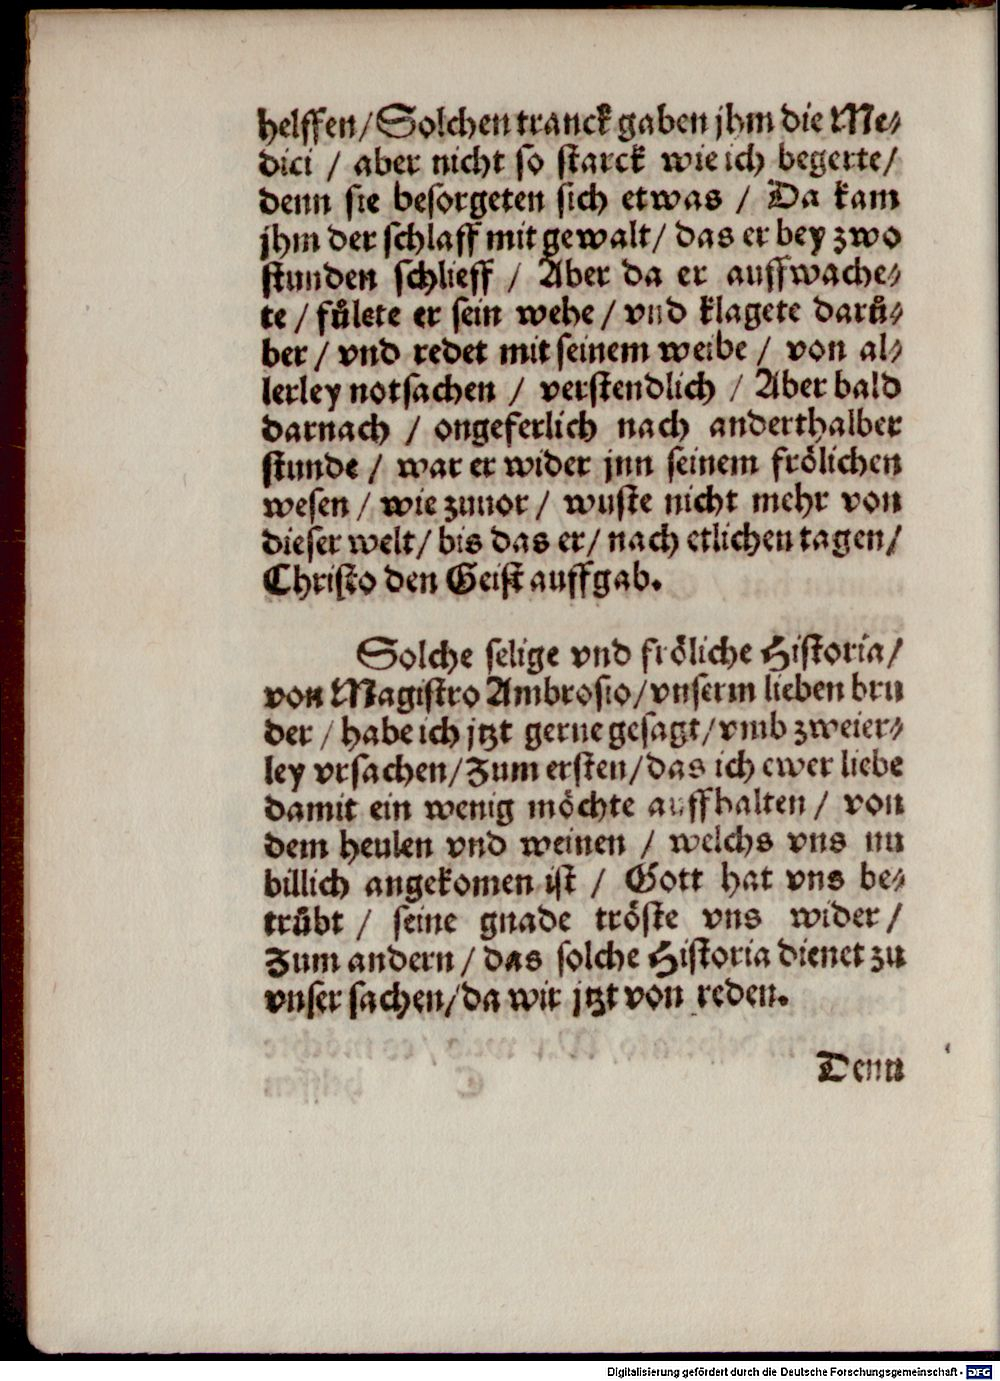 helffen/Solchen tranck gaben jhm die Me⸗
dici / aber nicht so starck wie ich begerte/
denn sie besorgeten sich etwas / Da kam
jhm der schlaff mit gewalt/ das er bey zwo
stunden schlieff / Aber da er auffwache⸗
te / fůlete er sein wehe / vnd klagete darů⸗
ber / vnd redet mit seinem weibe / von al⸗
lerley notsachen / verstendlich / Aber bald
darnach / ongeferlich nach anderthalber
stunde / war er wider jnn seinem frölichen
wesen / wie zuuor / wuste nicht mehr von
dieser welt/ bis das er/ nach etlichen tagen/
Christo den Geist auffgab.
Solche selige vnd fröliche Historia/
von Magistro Ambrosio/vnserm lieben bru
der / habe ich jtzt gerne gesagt/vmb zweier⸗
ley vrsachen/Zum ersten/das ich ewer liebe
damit ein wenig möchte auffhalten / von
dem heulen vnd weinen / welchs vns nu
billich angekomen ist / Gott hat vns be⸗
trůbt / seine gnade tröste vns wider/
Zum andern / das solche Historia dienet zu
vnser sachen/da wir jtzt von reden.
Denn
Digitalisierung gefördert durch die Deutsche Forschungsgemeinschaft - DFG